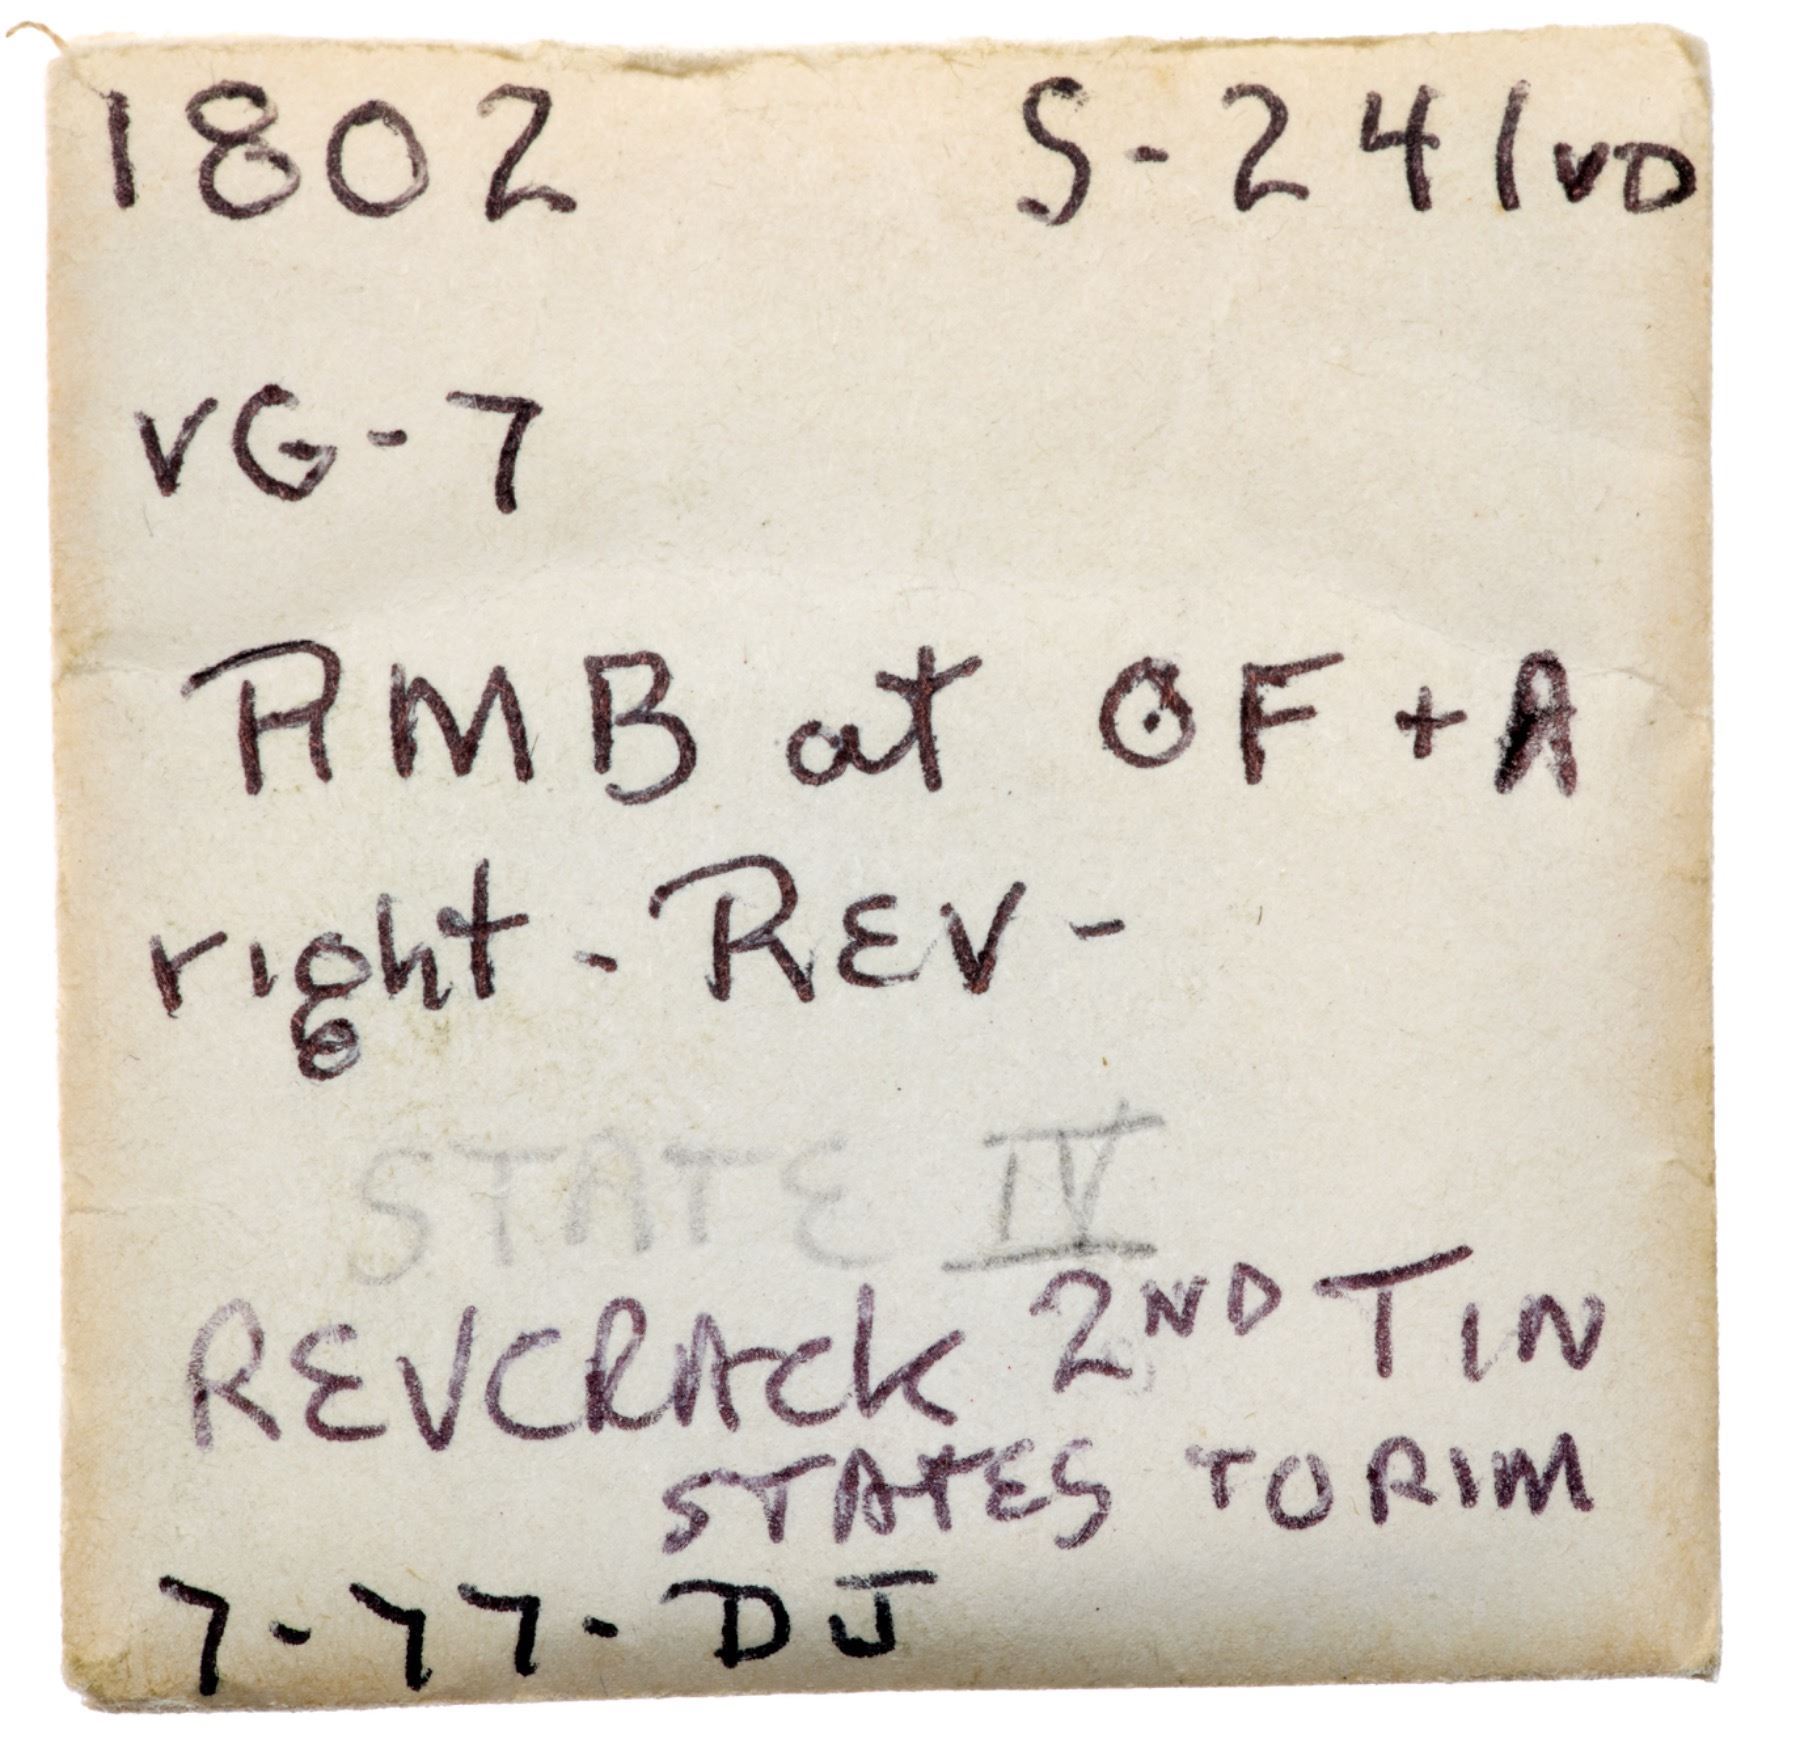 1802 S-241VD
VG-7
RMB at OF + A
right - REV -
STATE IV
REVCRACK 2ND T IN
STATES TO RIM
7-77-DJ